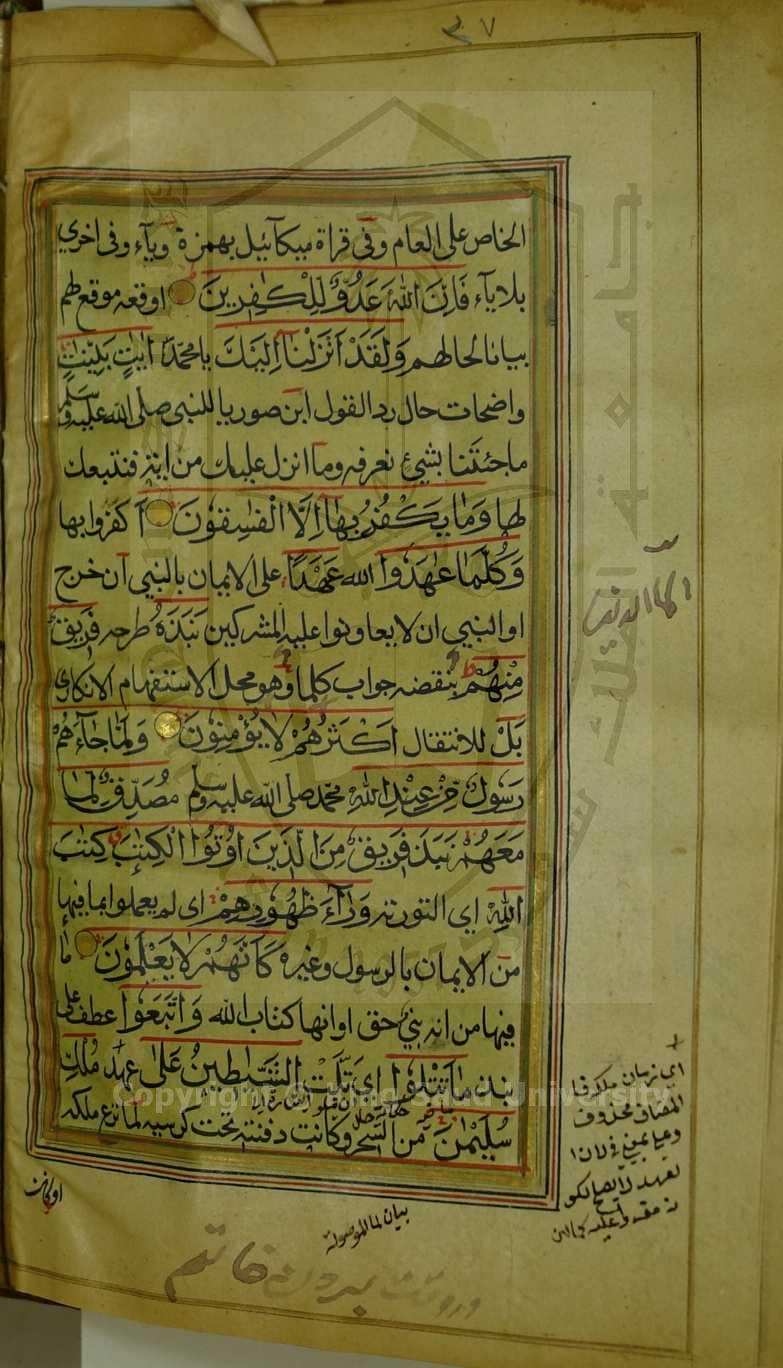 ٣٧
الخاص على العام وفى قراة ميكآئيل بهمزة ويآء وفى اخري
بلا يآء فَاِنَّ اللّٰهَ عَدُوٌّ لِلْكٰفِرِينَ اوقعه موقع لهم
بيانا لحالهم وَلَقَدْ اَنْزَلْنَآ اِلَيْكَ يا محمد اٰيٰتٍ بَيِّنٰتٍ
واضحات حال رد القول ابن صوريا للنبى صلى الله عليه وسلم
ما جئتنا بشيئ نعرفه وما انزل عليك من اية فنتبعك
لها وَمَا يَكْفُرُ بِهَآ اِلَّا الْفٰسِقُونَ ا كفروا بها
وَكُلَّمَا عٰهَدُوا الله عَهْدًا على الايمان بالنبي ان خرج
او النبي ان لا يعاونوا عليه المشركين نَبَذَهُ طرحه فَرِيقٌ
مِنْهُمْ بنقضه جواب كلما وهو محل الاستفهام الانكاري
بَلْ للانتقال اَكْثَرُهُمْ لَا يُؤْمِنُونَ وَلَمَّا جَآءَهُمْ
رَسُولٌ مِّنْ عِنْدِ اللّٰهِ محمد صلى الله عليه وسلم مُصَدِّقٌ لِمَا
مَعَهُمْ نَبَذَ فَرِيقٌ مِنَ الَّذِينَ اُوتُوا الْكِتٰبَ كِتٰبَ
اللّٰهِ اي التورىة وَرَآءَ ظُهُورِهِمْ اى لم يعملوا بما فيها
من الايمان بالرسول وغيره كَاَنَّهُمْ لَا يَعْلَمُونَ ما
فيها من انه نبي حق او انها كتاب الله وَاتَّبَعُوا عطف على
نبذ مَا تَتْلُوا اى تلت الشَّيٰطِينُ عَلٰى عهد مُلْكِ
سُلَيْمٰنَ من السحر وكانت دفنته تحت كرسيه لما نزع ملكه
او كانت
بيان لما الموصولة
اي زمان ملكه
المضاف محذوف